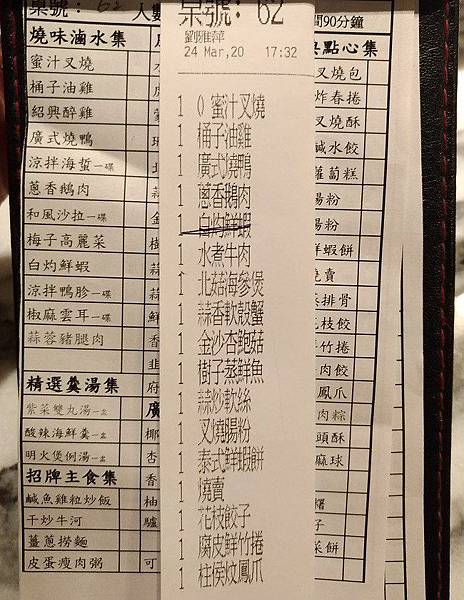 桌號: 62
人數
燒味滷水集
蜜汁叉燒
桶子油雞
紹興醉雞
廣式燒鴨
涼拌海蜇一碟
蔥香鵝肉
和風沙拉一碟
梅子高麗菜
白灼鮮蝦
涼拌鴨胗一碟
椒麻雲耳一碟
蒜蓉豬腿肉
精選羹湯集
紫菜雙丸湯一盅
酸辣海鮮羹一盅
明火煲例湯一盅
招牌主食集
鹹魚雞粒炒飯
干炒牛河
薑蔥撈麵
皮蛋瘦肉粥
桌號: 62
劉雅萍
24 Mar,20 17:32
1 0 蜜汁叉燒
1 桶子油雞
1 廣式燒鴨
1 蔥香鵝肉
1 白灼鮮蝦
1 水煮牛肉
1 北菇海參煲
1 蒜香軟殼蟹
1 金沙杏鮑菇
1 樹子蒸鮮魚
1 蒜炒軟絲
1 叉燒腸粉
1 泰式鮮蝦餅
1 燒賣
1 花枝餃子
1 腐皮鮮竹捲
1 柱侯炆鳳爪
間90分鐘
點心集
叉燒包
炸春捲
叉燒酥
鹹水餃
蘿蔔糕
腸粉
腸粉
鮮蝦餅
燒賣
蒸排骨
花枝餃
竹捲
餃
鳳爪
肉粽
頭酥
麻球
子
菜餅